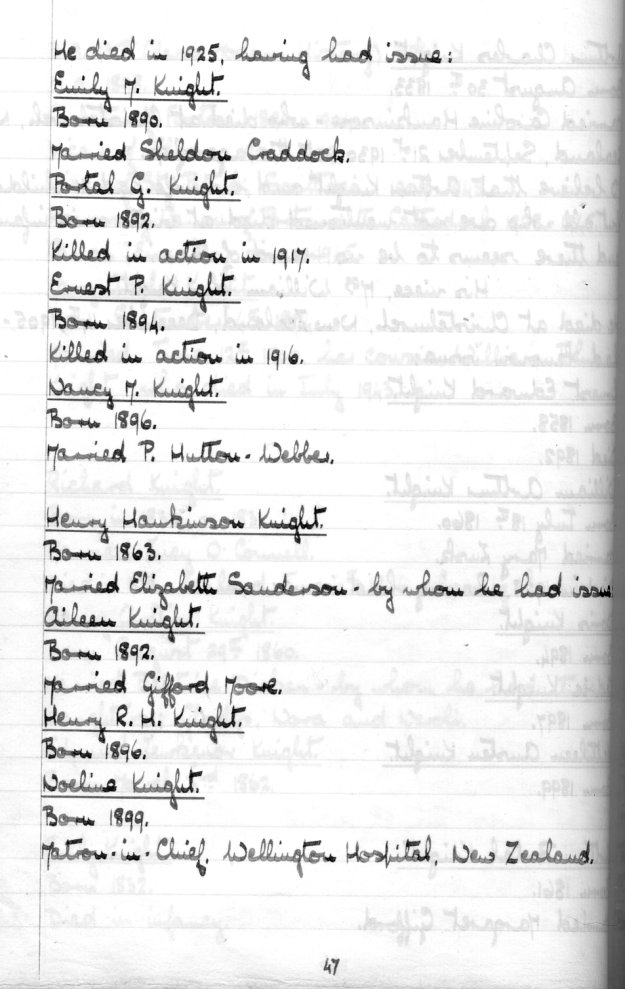 He died in 1925, having had issue:
Emily M. Knight.
Born 1890.
Married Sheldon Craddock.
Portal G. Knight.
Born 1892.
Killed in action in 1917.
Ernest P. Knight.
Born 1894.
Killed in action in 1916.
Nancy M. Knight.
Born 1896.
Married P. Hutton-Webber.
Henry Hankinson Knight.
Born 1863.
Married Elizabeth Sanderson - by whom he had issue
Aileen Knight.
Born 1892.
Married Gifford Moore.
Henry R. H. Knight.
Born 1896.
Noeline Knight.
Born 1899.
Matron-in-Chief, Wellington Hospital, New Zealand.
47